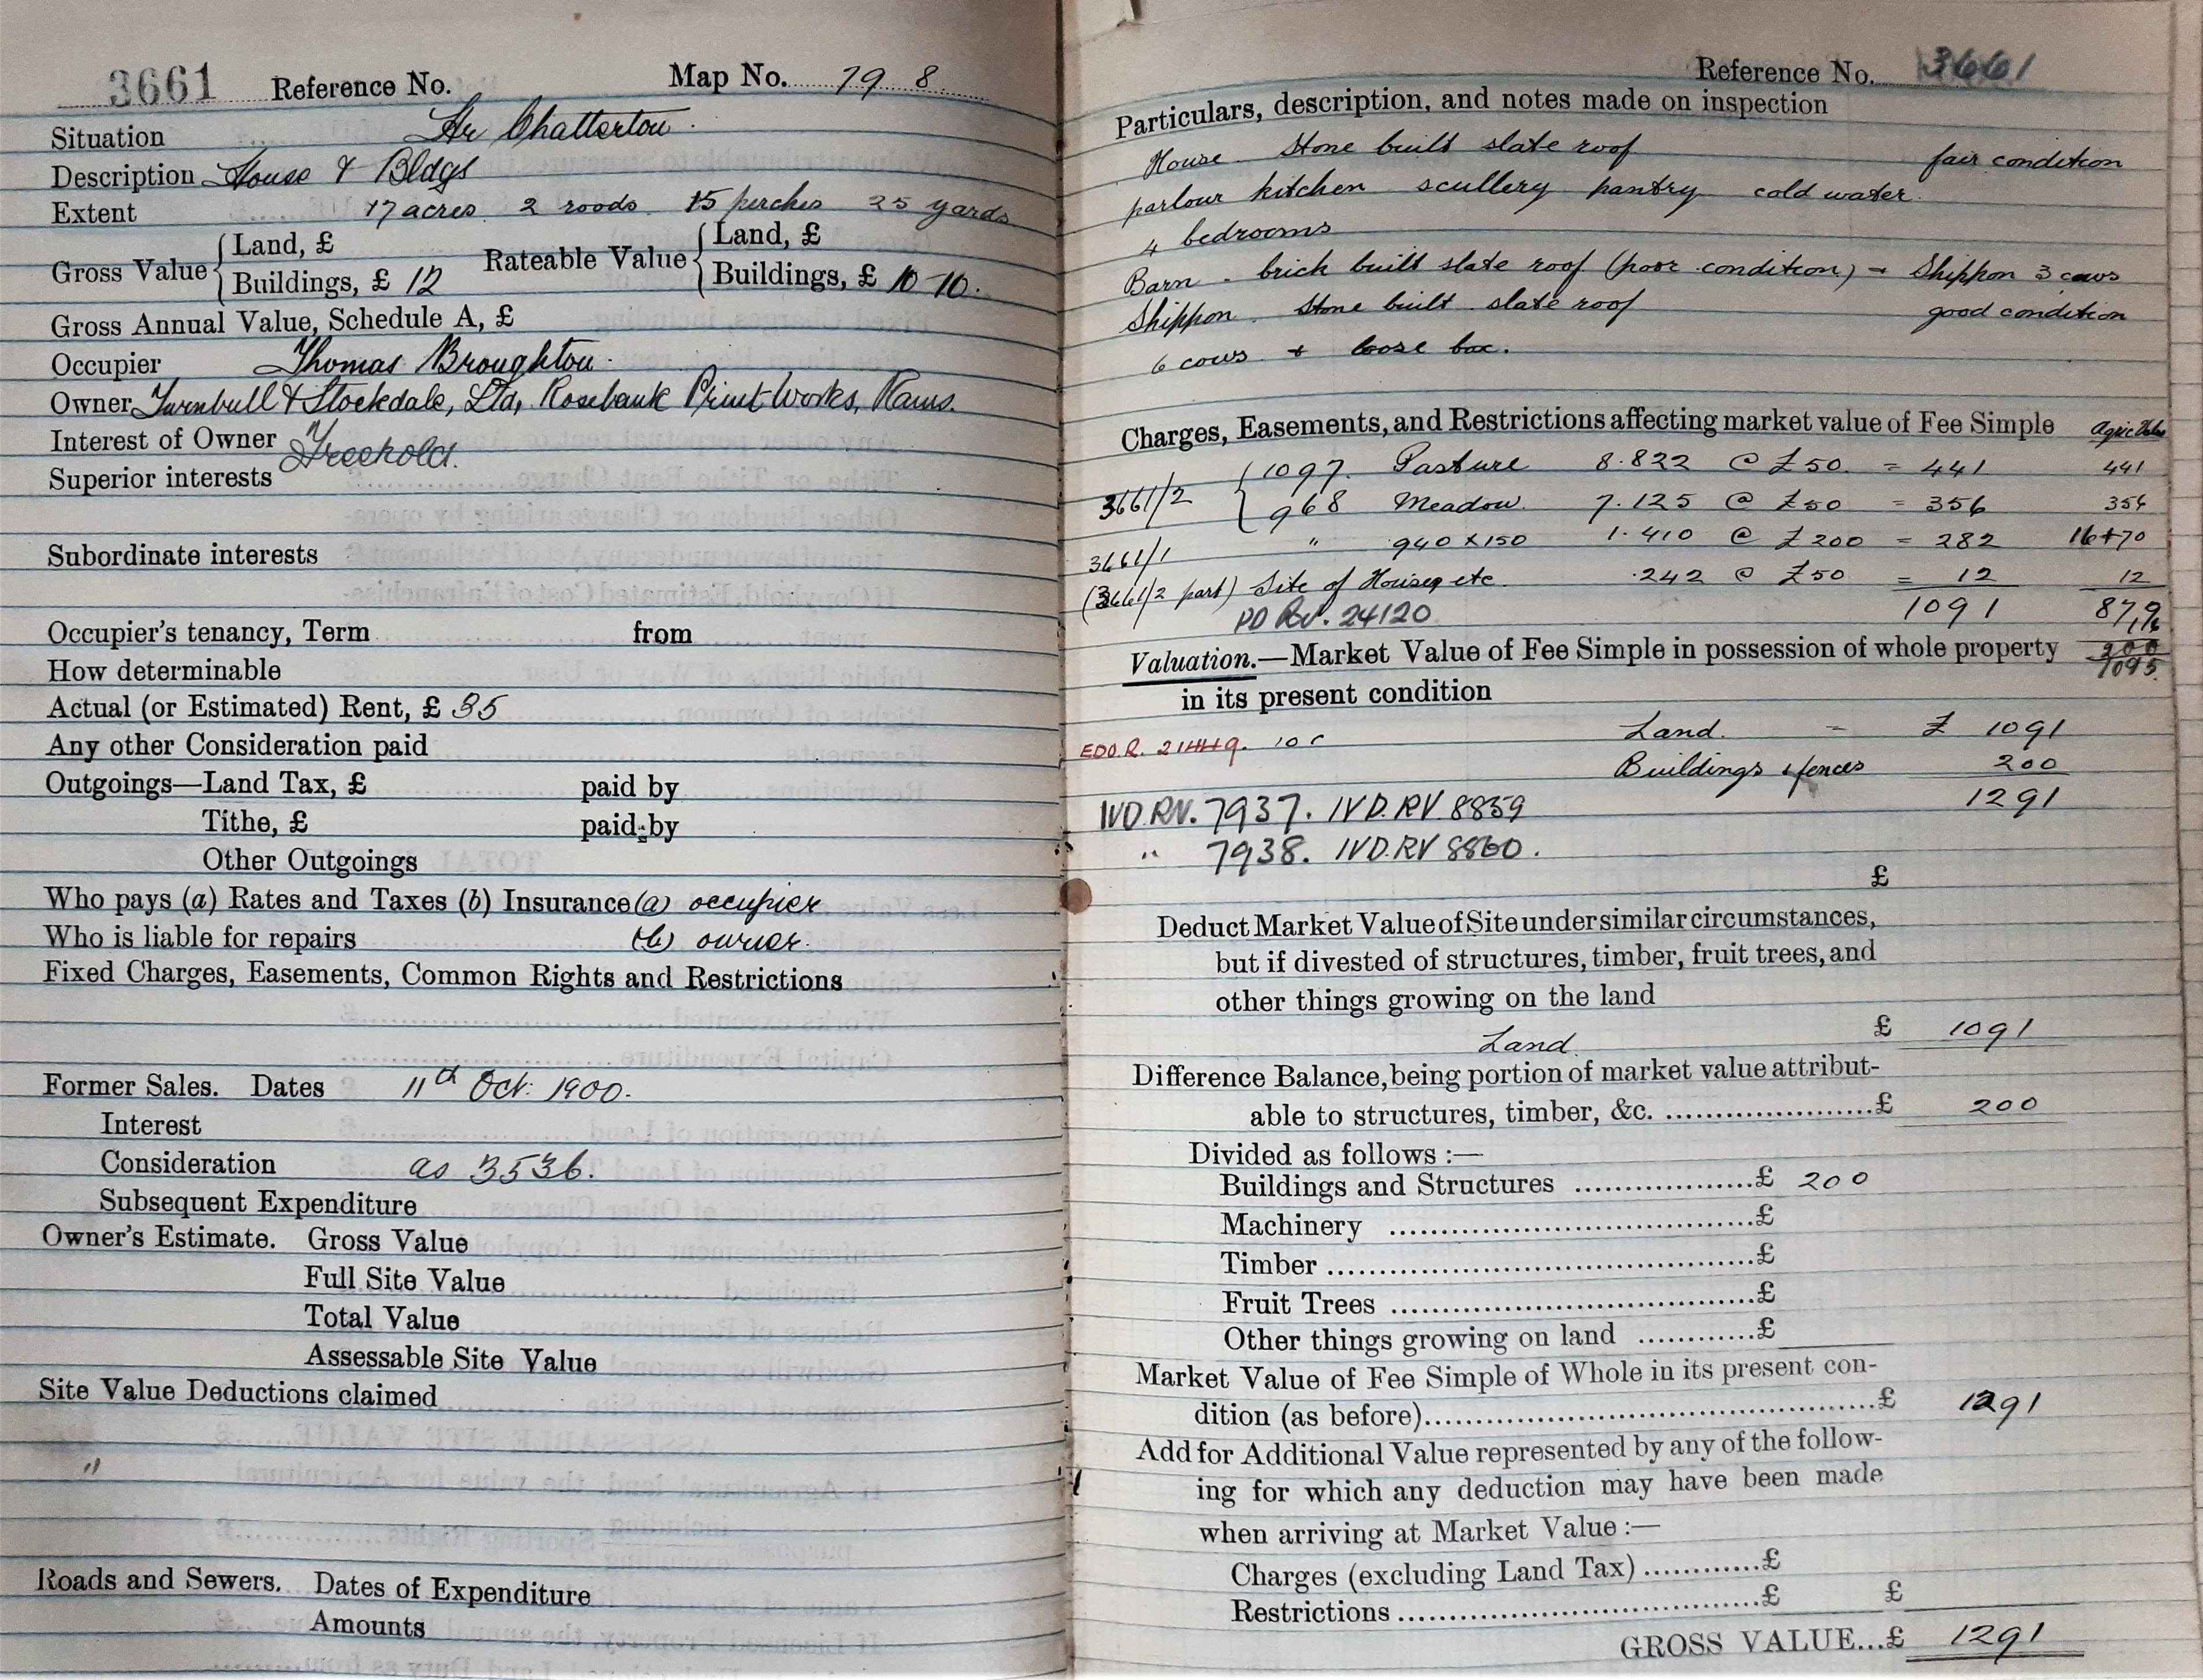 3661 Reference No. Map No. 79 8
Situation Hr Chatterton.
Description House & Bldgs
Extent 17 acres 2 roods 15 perches 25 yards
Gross Value { Land, £ Rateable Value { Land, £
Buildings, £ 12 Buildings, £ 10-10.
Gross Annual Value, Schedule A, £
Occupier Thomas Broughton.
Owner Turnbull & Stockdale, Ltd, Rosebank Print Works, Rams.
Interest of Owner Freehold.
Superior interests
Subordinate interests
Occupier's tenancy, Term from
How determinable
Actual (or Estimated) Rent, £ 35
Any other Consideration paid
Outgoings—Land Tax, £ paid by
Tithe, £ paid by
Other Outgoings
Who pays (a) Rates and Taxes (b) Insurance (a) occupier
Who is liable for repairs (b) owner.
Fixed Charges, Easements, Common Rights and Restrictions
Former Sales. Dates 11th Oct. 1900.
Interest
Consideration as 3536.
Subsequent Expenditure
Owner's Estimate. Gross Value
Full Site Value
Total Value
Assessable Site Value
Site Value Deductions claimed
"
Roads and Sewers. Dates of Expenditure
Amounts
Reference No. 3661
Particulars, description, and notes made on inspection
House. Stone built slate roof fair condition
parlour kitchen scullery pantry cold water.
4 bedrooms
Barn - brick built slate roof (poor condition) - Shippon 3 cows
Shippon. Stone built slate roof good condition
6 cows + loose box.
Charges, Easements, and Restrictions affecting market value of Fee Simple Agric Value
3661/2 { 1097. Pasture 8.822 @ £50. = 441 441
968 Meadow. 7.125 @ £50 = 356 356
3661/1 " 940 x 150 1.410 @ £200 = 282 70
(3661/2 part) Site of House, etc. .242 @ £50 = 12 12
PD Rv. 24120 1091 879
Valuation.—Market Value of Fee Simple in possession of whole property 200
in its present condition 1095
Land. = £ 1091
EDO.R. 10
Buildings & fences 200
1291
IVD.RV. 7937. IVD.RV 8859
" 7938. IVD.RV 8860.
£
Deduct Market Value of Site under similar circumstances,
but if divested of structures, timber, fruit trees, and
other things growing on the land
Land. £ 1091
Difference Balance, being portion of market value attribut-
able to structures, timber, &c. ....................£ 200
Divided as follows :—
Buildings and Structures ..................£ 200
Machinery ..................£
Timber ..................£
Fruit Trees ..................£
Other things growing on land ............£
Market Value of Fee Simple of Whole in its present con-
dition (as before)..................£ 1291
Add for Additional Value represented by any of the follow-
ing for which any deduction may have been made
when arriving at Market Value :—
Charges (excluding Land Tax) ............£
Restrictions ..................£ £
GROSS VALUE...£ 1291